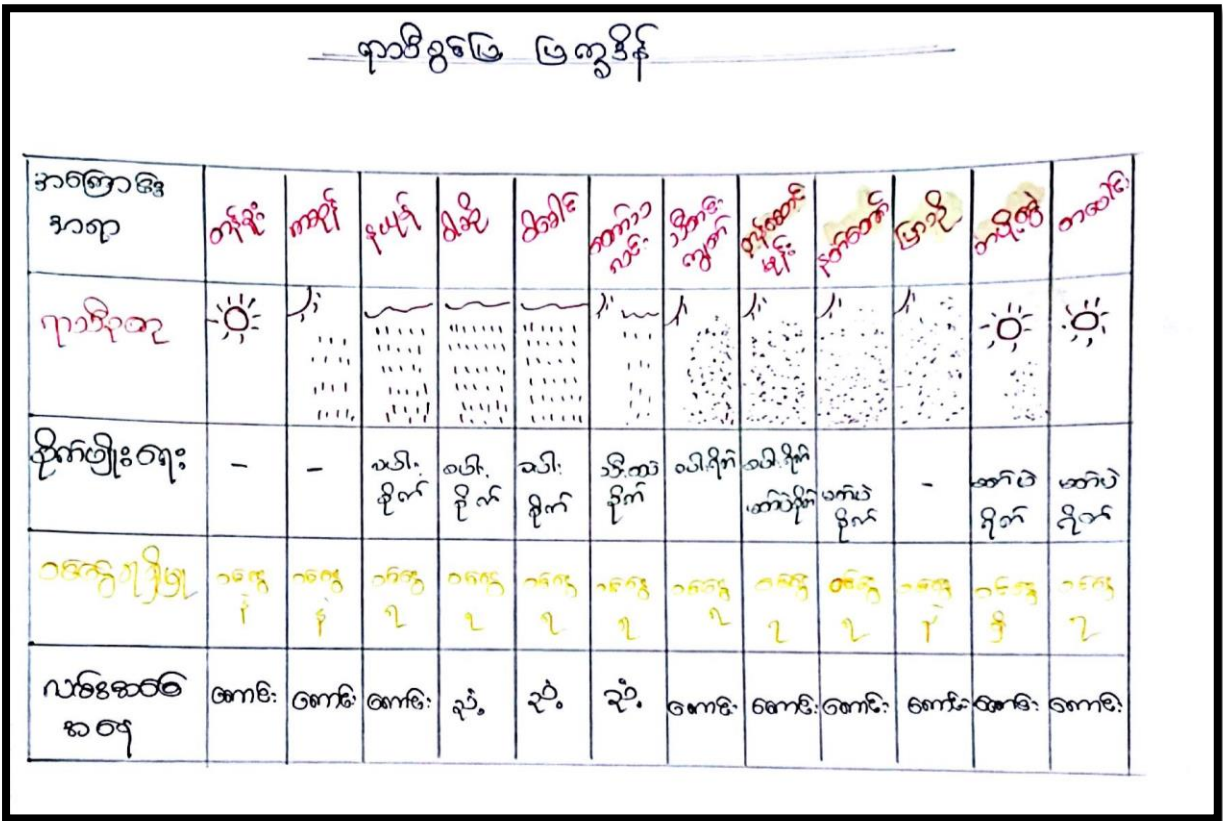 ရာသီခွင်ပြ ပြက္ခဒိန်
အကြောင်း
အရာ
တန်ခူး
ကဆုန်
နယုန်
ဝါဆို
ဝါခေါင်
တော်သ
လင်း
သီတင်း
ကျွတ်
တန်ဆောင်
မုန်း
နတ်တော်
ပြာသို
တပို့တွဲ
တပေါင်း
ရာသီဥတု
စိုက်ပျိုးရေး
-
-
စပါး
စိုက်
စပါး
စိုက်
စပါး
စိုက်
စိုက်
စပါးရိတ်
စပါးရိတ်
မတ်ပဲစိုက်
မတ်ပဲ
စိုက်
-
မတ်ပဲ
မတ်ပဲ
ဝင်ငွေရရှိမှု
ဝင်ငွေ
နဲ
ဝင်ငွေ
နဲ
ဝင်ငွေ
ရ
ဝင်ငွေ
ရ
ဝင်ငွေ
ရ
ဝင်ငွေ
ရ
ဝင်ငွေ
ရ
ဝင်ငွေ
ရ
ဝင်ငွေ
ရ
ဝင်ငွေ
နဲ
ဝင်ငွေ
ရှိ
ဝင်ငွေ
ရ
လမ်းအခြေ
အနေ
ကောင်း
ကောင်း
ကောင်း
ညံ့
ညံ့
ညံ့
ကောင်း
ကောင်း
ကောင်း
ကောင်း
ကောင်း
ကောင်း